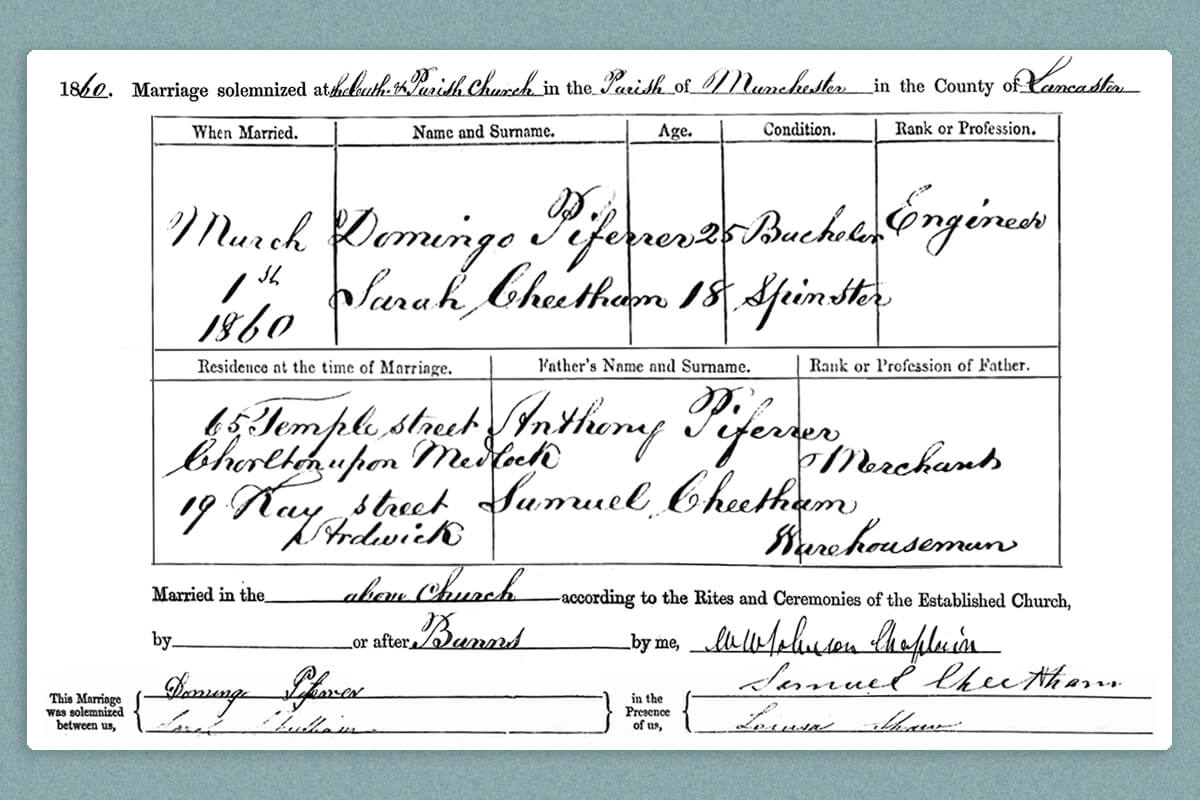 1860. Marriage solemnized at the Cath. & Parish Church in the Parish of Manchester in the County of Lancaster
When Married. Name and Surname. Age. Condition. Rank or Profession.
March Domingo Piferrer 25 Bachelor Engineer
1st Sarah Cheetham 18 Spinster
1860
Residence at the time of Marriage. Father's Name and Surname. Rank or Profession of Father.
65 Temple street Anthony Piferrer
Chorlton upon Medlock Merchant
19 Kay street Samuel Cheetham
Ardwick Warehouseman
Married in the above Church according to the Rites and Ceremonies of the Established Church,
by or after Banns by me, Johnson Chaplain
This Marriage was solemnized between us, Domingo Piferrer in the Presence of us, Samuel Cheetham
Sarah Cheetham Louisa Shaw